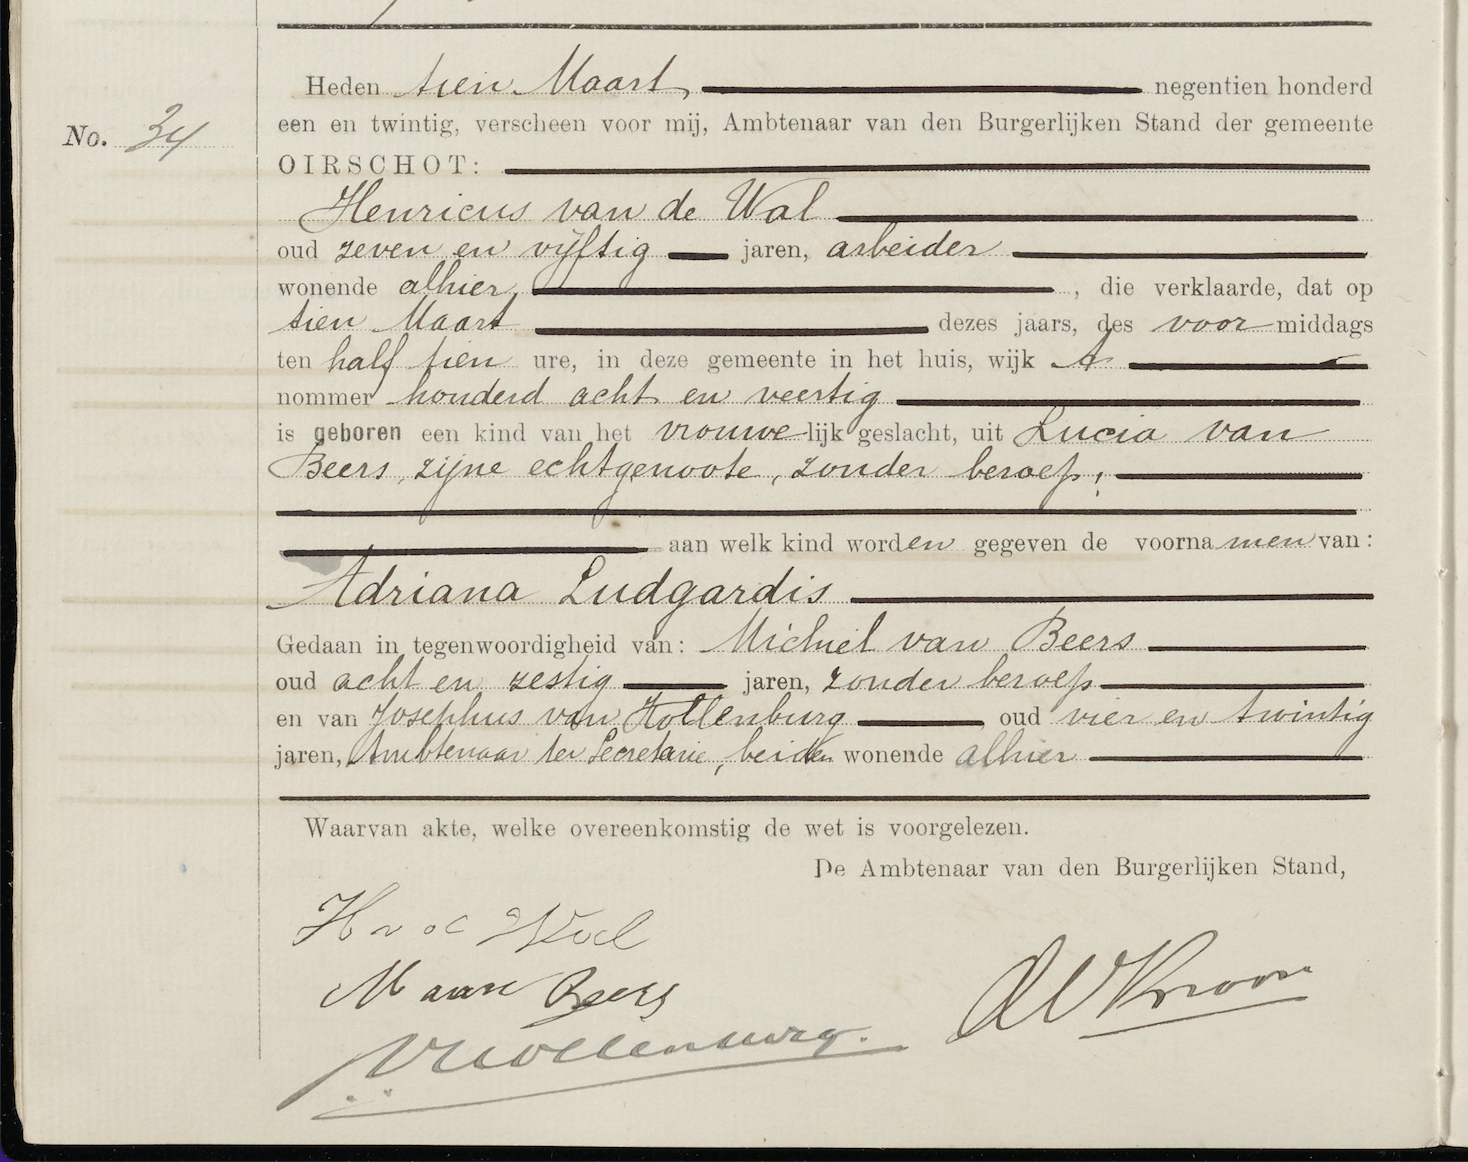 Heden tien Maart, negentien honderd
No. 34
een en twintig, verscheen voor mij, Ambtenaar van den Burgerlijken Stand der gemeente
OIRSCHOT:
Henricus van de Wal
oud zeven en vijftig jaren, arbeider
wonende alhier, , die verklaarde, dat op
tien Maart dezes jaars, des voor middags
ten half tien ure, in deze gemeente in het huis, wijk A
nommer honderd acht en veertig
is geboren een kind van het vrouwelijk geslacht, uit Lucia van
Beers, zijne echtgenoote, zonder beroep;
aan welk kind worden gegeven de voornamen van:
Adriana Ludgardis
Gedaan in tegenwoordigheid van: Michiel van Beers
oud acht en zestig jaren, zonder beroep
en van Josephus van Hollenburg oud vier en twintig
jaren, Ambtenaar ter Secretarie, beiden wonende alhier
Waarvan akte, welke overeenkomstig de wet is voorgelezen.
De Ambtenaar van den Burgerlijken Stand,
H v d Wal
M van Beers
VHollenburg.